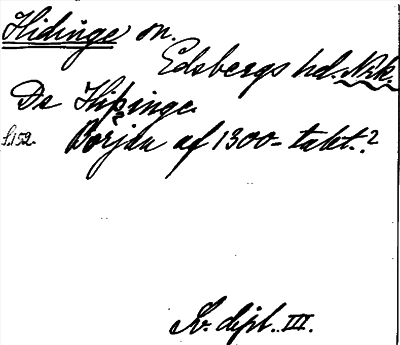 Hidinge sn.
Edsbergs hd. Nrk.
De Hiþinge.
s.152. Början af 1300-talet.?
Sv. dipl. III.